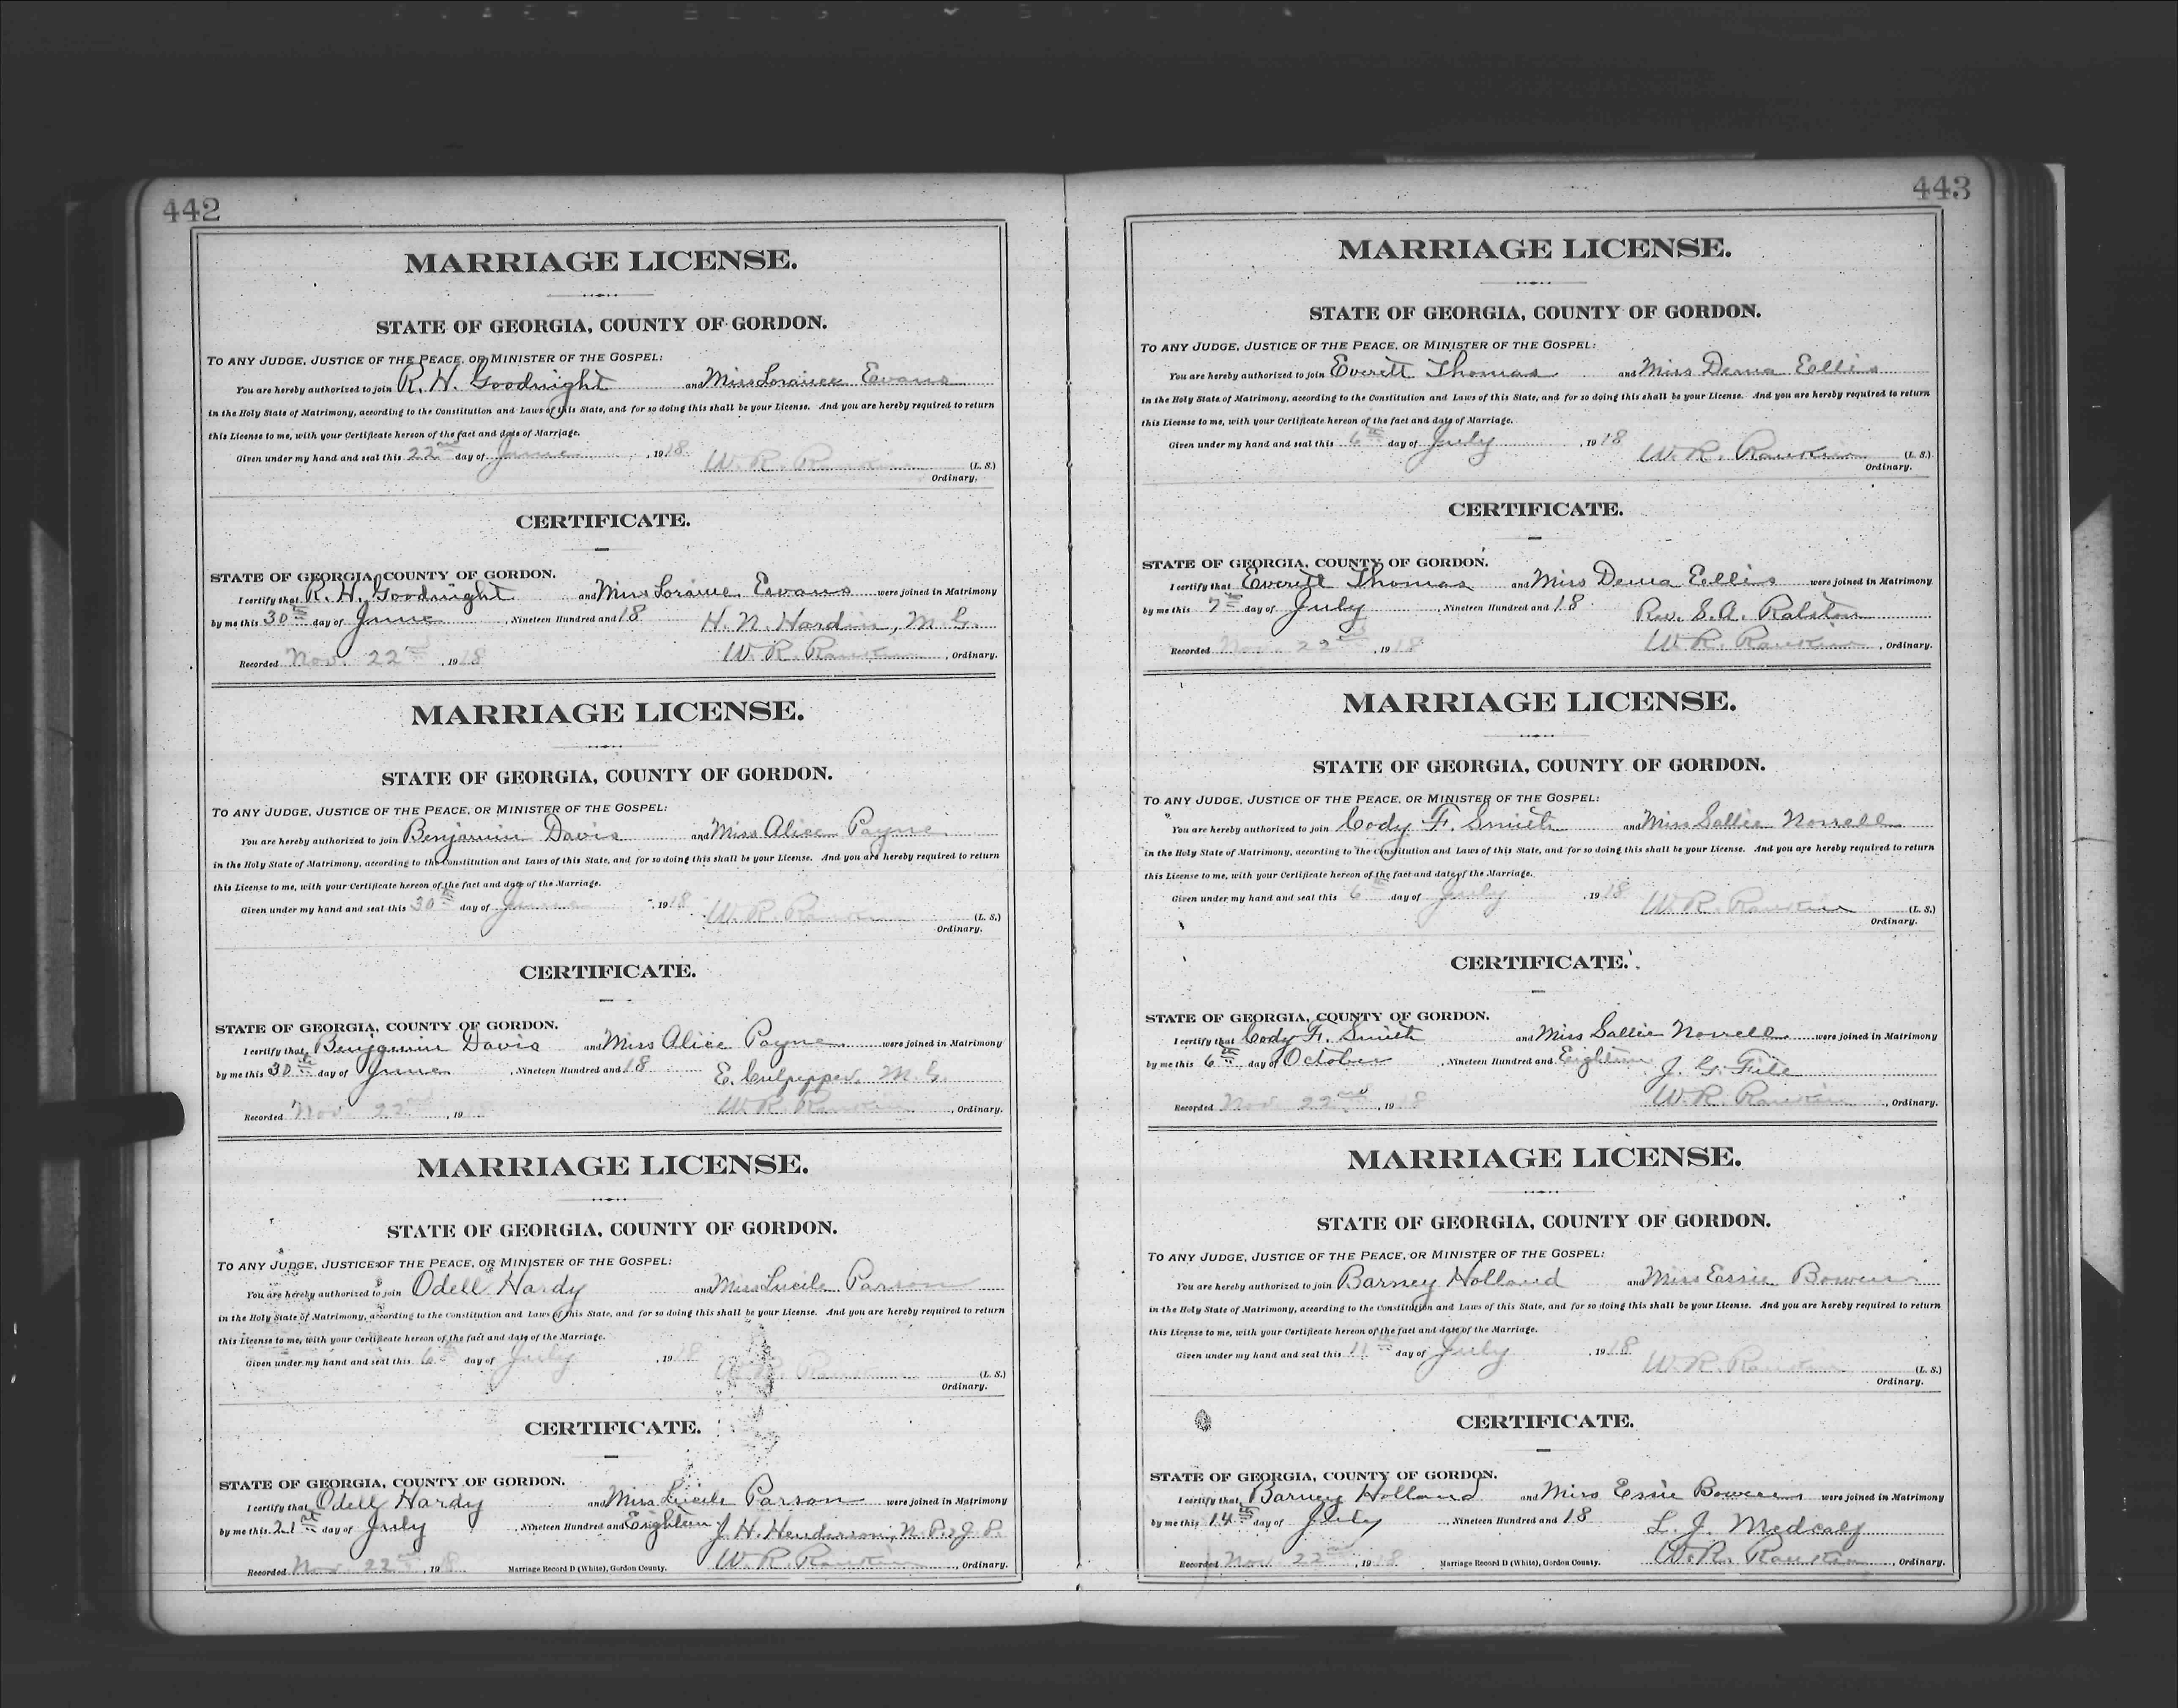 442
MARRIAGE LICENSE.
STATE OF GEORGIA, COUNTY OF GORDON.
TO ANY JUDGE, JUSTICE OF THE PEACE, OR MINISTER OF THE GOSPEL:
You are hereby authorized to join R. H. Goodnight and Miss Loraine Evans
in the Holy State of Matrimony, according to the Constitution and Laws of this State, and for so doing this shall be your License. And you are hereby required to return
this License to me, with your Certificate hereon of the fact and date of Marriage.
Given under my hand and seal this 22nd day of June, 1918. W. R. Rankin (L. S.)
Ordinary.
CERTIFICATE.
STATE OF GEORGIA, COUNTY OF GORDON.
I certify that R. H. Goodnight and Miss Loraine Evans were joined in Matrimony
by me this 30th day of June, Nineteen Hundred and 18 H. N. Hardin, M. G.
Recorded Nov. 22nd, 1918 W. R. Rankin, Ordinary.
MARRIAGE LICENSE.
STATE OF GEORGIA, COUNTY OF GORDON.
TO ANY JUDGE, JUSTICE OF THE PEACE, OR MINISTER OF THE GOSPEL:
You are hereby authorized to join Benjamin Davis and Miss Alice Payne
in the Holy State of Matrimony, according to the Constitution and Laws of this State, and for so doing this shall be your License. And you are hereby required to return
this License to me, with your Certificate hereon of the fact and date of the Marriage.
Given under my hand and seal this 30th day of June, 1918 W. R. Rankin (L. S.)
Ordinary.
CERTIFICATE.
STATE OF GEORGIA, COUNTY OF GORDON.
I certify that Benjamin Davis and Miss Alice Payne were joined in Matrimony
by me this 30th day of June, Nineteen Hundred and 18 E. Culpepper, M. G.
Recorded Nov. 22nd, 1918 W. R. Rankin, Ordinary.
MARRIAGE LICENSE.
STATE OF GEORGIA, COUNTY OF GORDON.
TO ANY JUDGE, JUSTICE OF THE PEACE, OR MINISTER OF THE GOSPEL:
You are hereby authorized to join Odell Hardy and Miss Lucile Parson
in the Holy State of Matrimony, according to the Constitution and Laws of this State, and for so doing this shall be your License. And you are hereby required to return
this License to me, with your Certificate hereon of the fact and date of the Marriage.
Given under my hand and seal this 6th day of July, 1918 W. R. Rankin (L. S.)
Ordinary.
CERTIFICATE.
STATE OF GEORGIA, COUNTY OF GORDON.
I certify that Odell Hardy and Miss Lucile Parson were joined in Matrimony
by me this 21st day of July, Nineteen Hundred and Eighteen J. H. Henderson, N. P. & J. P.
Recorded Nov. 22nd, 1918 Marriage Record D (White), Gordon County. W. R. Rankin, Ordinary.
443
MARRIAGE LICENSE.
STATE OF GEORGIA, COUNTY OF GORDON.
TO ANY JUDGE, JUSTICE OF THE PEACE, OR MINISTER OF THE GOSPEL:
You are hereby authorized to join Everett Thomas and Miss Dema Eellis
in the Holy State of Matrimony, according to the Constitution and Laws of this State, and for so doing this shall be your License. And you are hereby required to return
this License to me, with your Certificate hereon of the fact and date of Marriage.
Given under my hand and seal this 6th day of July, 1918 W. R. Rankin (L. S.)
Ordinary.
CERTIFICATE.
STATE OF GEORGIA, COUNTY OF GORDON.
I certify that Everett Thomas and Miss Dema Eellis were joined in Matrimony
by me this 7th day of July, Nineteen Hundred and 18. Rev. S. A. Ralston
Recorded Nov. 22nd, 1918 W. R. Rankin, Ordinary.
MARRIAGE LICENSE.
STATE OF GEORGIA, COUNTY OF GORDON.
TO ANY JUDGE, JUSTICE OF THE PEACE, OR MINISTER OF THE GOSPEL:
You are hereby authorized to join Cody F. Smith and Miss Sallie Norrell
in the Holy State of Matrimony, according to the Constitution and Laws of this State, and for so doing this shall be your License. And you are hereby required to return
this License to me, with your Certificate hereon of the fact and date of the Marriage.
Given under my hand and seal this 6th day of July, 1918 W. R. Rankin (L. S.)
Ordinary.
CERTIFICATE.
STATE OF GEORGIA, COUNTY OF GORDON.
I certify that Cody F. Smith and Miss Sallie Norrell were joined in Matrimony
by me this 6th day of October, Nineteen Hundred and Eighteen J. G.
Recorded Nov. 22nd, 1918 W. R. Rankin, Ordinary.
MARRIAGE LICENSE.
STATE OF GEORGIA, COUNTY OF GORDON.
TO ANY JUDGE, JUSTICE OF THE PEACE, OR MINISTER OF THE GOSPEL:
You are hereby authorized to join Barney Holland and Miss Essie Bowen
in the Holy State of Matrimony, according to the Constitution and Laws of this State, and for so doing this shall be your License. And you are hereby required to return
this License to me, with your Certificate hereon of the fact and date of the Marriage.
Given under my hand and seal this 11th day of July, 1918. W. R. Rankin (L. S.)
Ordinary.
CERTIFICATE.
STATE OF GEORGIA, COUNTY OF GORDON.
I certify that Barney Holland and Miss Essie Bowen were joined in Matrimony
by me this 14th day of July, Nineteen Hundred and 18 L. J. Medcalf
Recorded Nov. 22nd, 1918 Marriage Record D (White), Gordon County. W. R. Rankin, Ordinary.